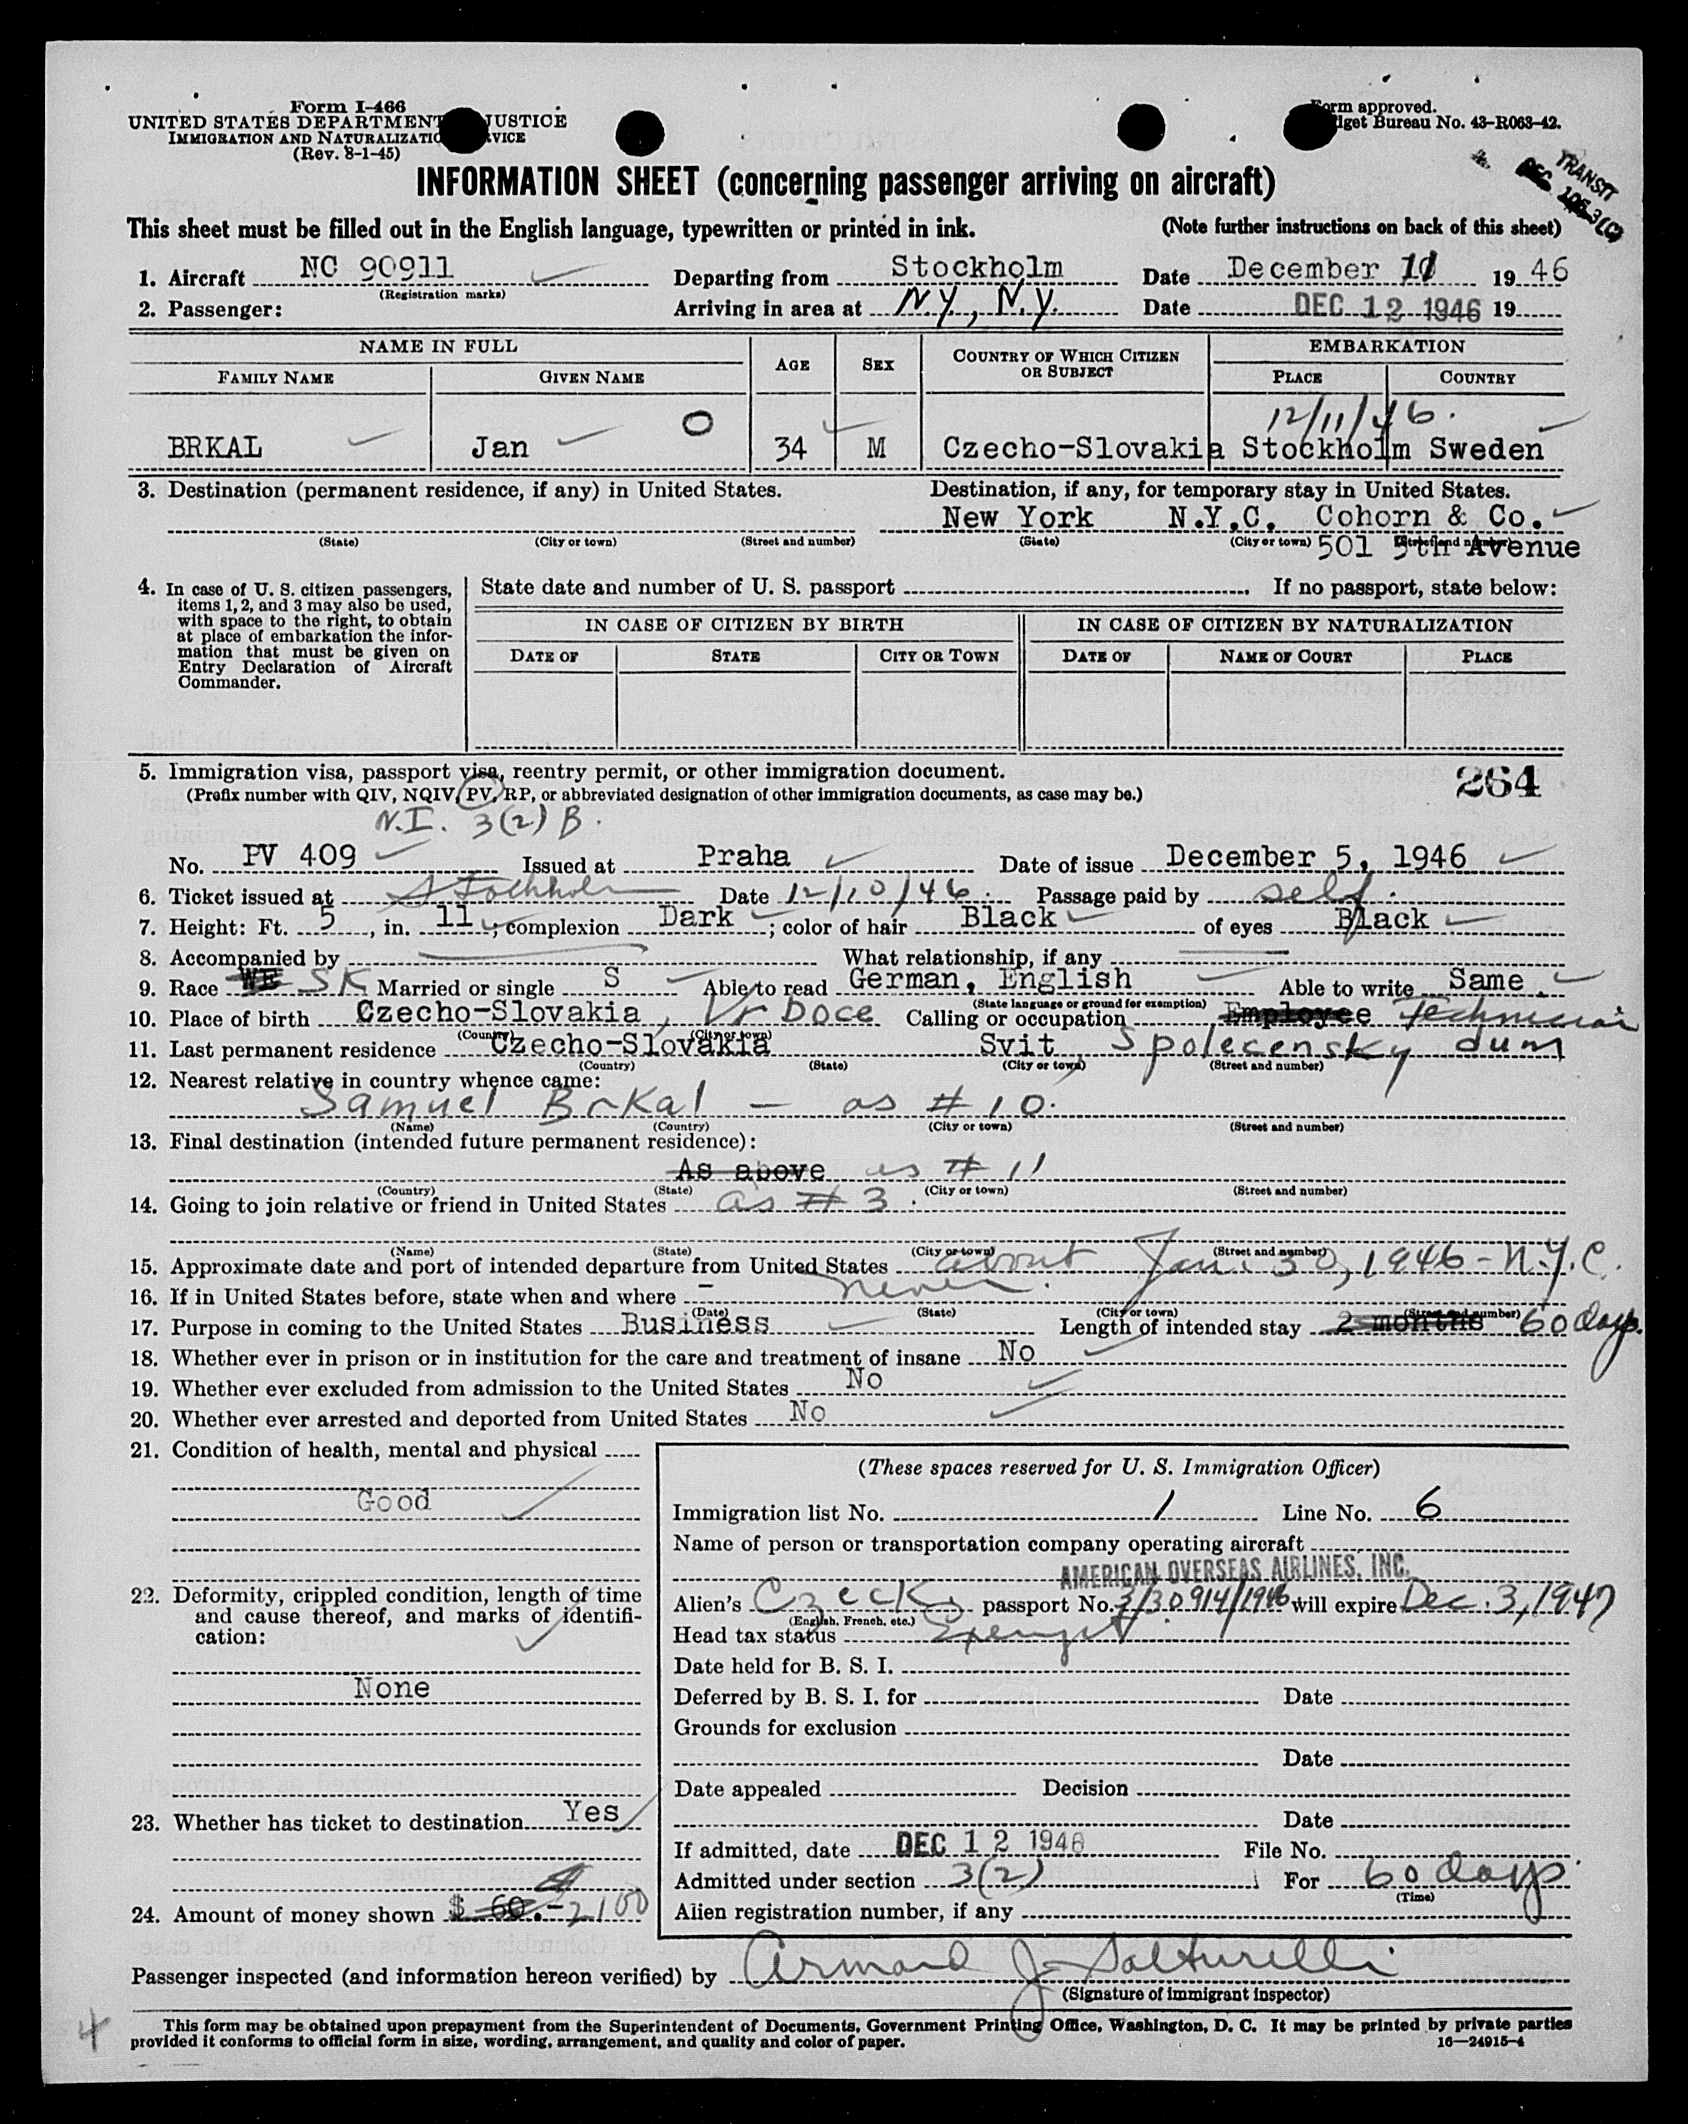 Form I-466
UNITED STATES DEPARTMENT JUSTICE
IMMIGRATION AND NATURALIZATIO VICE
(Rev. 8-1-45)
Form approved.
dget Bureau No. 43-R063-42.
TRANSIT
DEC 3(C)
INFORMATION SHEET (concerning passenger arriving on aircraft)
This sheet must be filled out in the English language, typewritten or printed in ink. (Note further instructions on back of this sheet)
1. Aircraft NC 90911 Departing from Stockholm Date December 11 1946
(Registration marks)
2. Passenger: Arriving in area at N.Y., N.Y. Date DEC 12 1946 19
NAME IN FULL AGE SEX COUNTRY OF WHICH CITIZEN OR SUBJECT EMBARKATION
FAMILY NAME GIVEN NAME PLACE COUNTRY
O 12/11/46.
BRKAL Jan 34 M Czecho-Slovakia Stockholm Sweden
3. Destination (permanent residence, if any) in United States. Destination, if any, for temporary stay in United States.
New York N.Y.C. Cohorn & Co.
(State) (City or town) (Street and number) (State) (City or town) 501 5th Avenue
4. In case of U. S. citizen passengers, items 1, 2, and 3 may also be used, with space to the right, to obtain at place of embarkation the information that must be given on Entry Declaration of Aircraft Commander.
State date and number of U. S. passport If no passport, state below:
IN CASE OF CITIZEN BY BIRTH IN CASE OF CITIZEN BY NATURALIZATION
DATE OF STATE CITY OR TOWN DATE OF NAME OF COURT PLACE
5. Immigration visa, passport visa, reentry permit, or other immigration document. 264
(Prefix number with QIV, NQIV, PV, RP, or abbreviated designation of other immigration documents, as case may be.)
N.I. 3(2) B.
No. PV 409 Issued at Praha Date of issue December 5, 1946
6. Ticket issued at Stockholm Date 12/10/46. Passage paid by self.
7. Height: Ft. 5, in. 11; complexion Dark; color of hair Black of eyes Black
8. Accompanied by What relationship, if any
9. Race WE SK Married or single S Able to read German, English Able to write Same.
(State language or ground for exemption)
10. Place of birth Czecho-Slovakia, Vr Doce Calling or occupation Employee Technician
(Country) (City or town)
11. Last permanent residence Czecho-Slovakia Svit Spolecensky dum
(Country) (State) (City or town) (Street and number)
12. Nearest relative in country whence came:
Samuel Brkal - as # 10.
(Name) (Country) (City or town) (Street and number)
13. Final destination (intended future permanent residence):
As above as # 11
(Country) (State) (City or town) (Street and number)
14. Going to join relative or friend in United States as # 3.
(Name) (State) (City or town) (Street and number)
15. Approximate date and port of intended departure from United States about Jan. 30, 1946 - N.Y.C.
16. If in United States before, state when and where - never.
(Date) (State) (City or town) (Street and number)
17. Purpose in coming to the United States Business Length of intended stay 2 months 60 days.
18. Whether ever in prison or in institution for the care and treatment of insane No
19. Whether ever excluded from admission to the United States No
20. Whether ever arrested and deported from United States No
21. Condition of health, mental and physical
Good
22. Deformity, crippled condition, length of time and cause thereof, and marks of identification:
None
23. Whether has ticket to destination Yes
24. Amount of money shown $ 60.- 2100
(These spaces reserved for U. S. Immigration Officer)
Immigration list No. 1 Line No. 6
Name of person or transportation company operating aircraft
AMERICAN OVERSEAS AIRLINES, INC.
Alien's Czeck passport No. 3/30914/1946 will expire Dec. 3, 1947
(English, French, etc.)
Head tax status Exempt
Date held for B. S. I.
Deferred by B. S. I. for Date
Grounds for exclusion
Date
Date appealed Decision
Date
If admitted, date DEC 12 1946 File No.
Admitted under section 3(2) For 60 days.
(Time)
Alien registration number, if any
Passenger inspected (and information hereon verified) by Armand J.
(Signature of Immigrant Inspector)
4
This form may be obtained upon prepayment from the Superintendent of Documents, Government Printing Office, Washington, D. C. It may be printed by private parties
provided it conforms to official form in size, wording, arrangement, and quality and color of paper. 16—24915-4